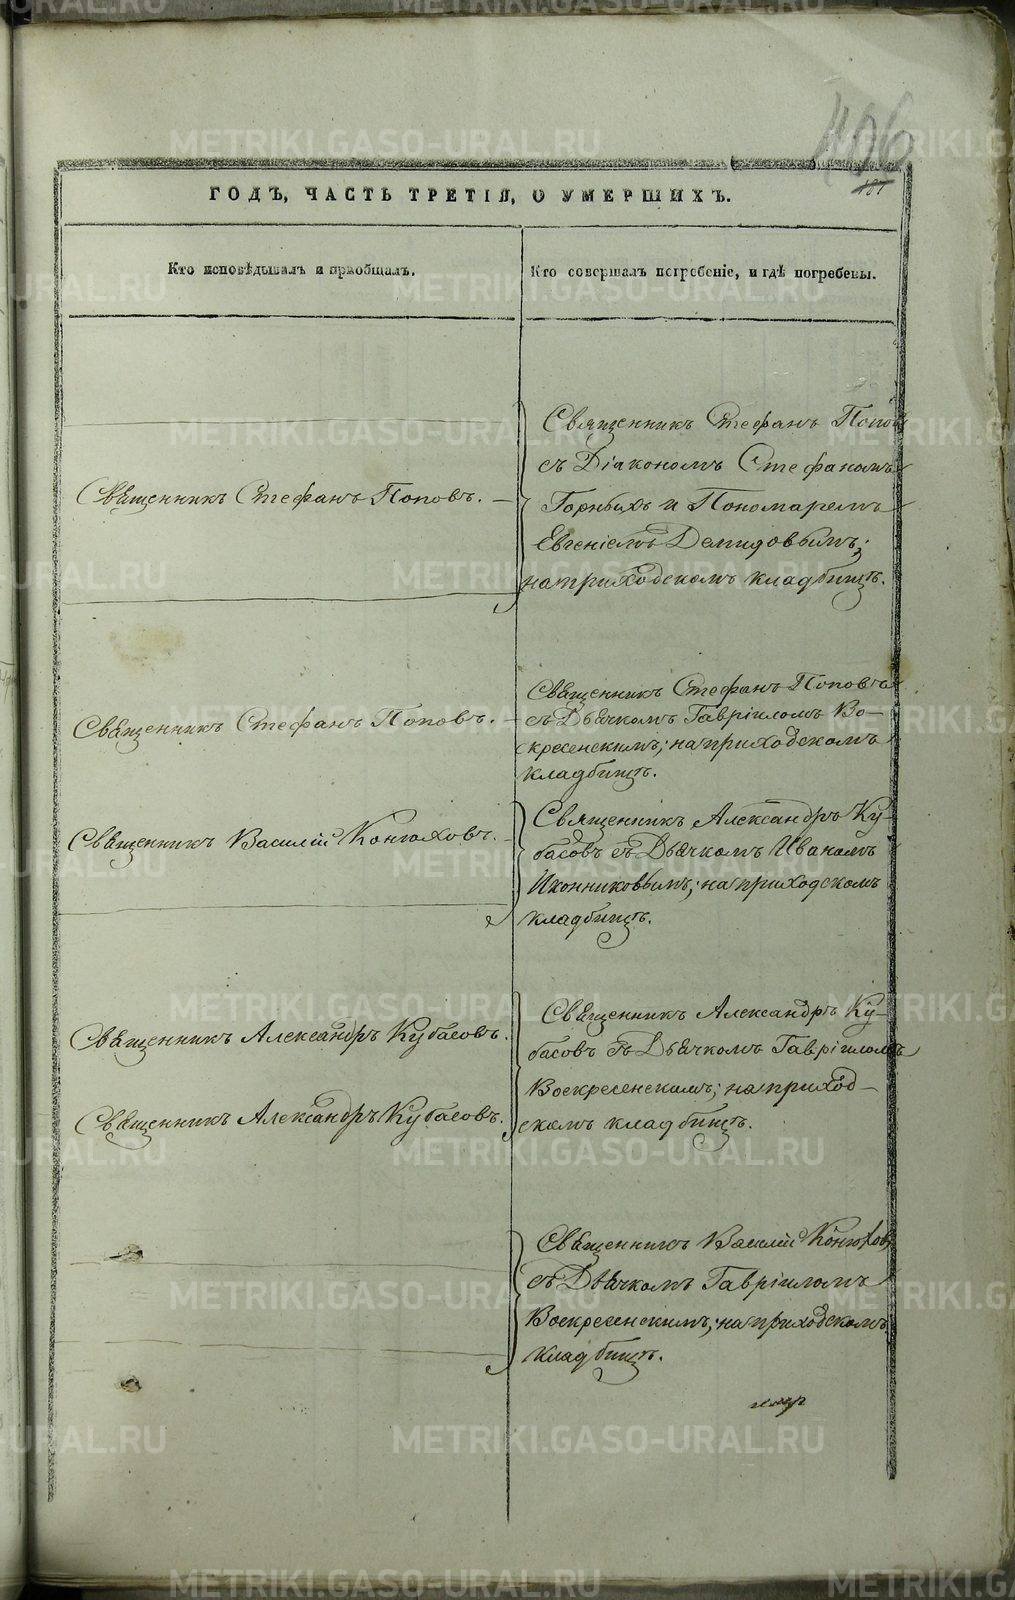 406
181
ГОДЪ, ЧАСТЬ ТРЕТІЯ, О УМЕРШИХЪ.
Кто исповѣдывалъ и пріобщалъ.
Кто совершалъ погребеніе, и гдѣ погребены.
Священникъ Стефанъ Поповъ.
Священникъ Стефанъ Поповъ
съ Діакономъ Стефаномъ
Горныхъ и Пономаремъ
Евгеніемъ Демидовымъ;
на приходскомъ кладбищѣ.
Священникъ Стефанъ Поповъ.
Священникъ Стефанъ Поповъ
съ Дьячкомъ Гавріиломъ Во-
кресенскимъ; на приходскомъ
кладбищѣ.
Священникъ Василій Конюховъ.
Священникъ Александръ Ку-
басовъ съ Дьячкомъ Иваномъ
Иконниковымъ; на приходскомъ
кладбищѣ.
Священникъ Александръ Кубасовъ.
Священникъ Александръ Кубасовъ.
Священникъ Александръ Ку-
басовъ съ Дьячкомъ Гавріиломъ
Воскресенскомъ; на приход-
скомъ кладбищѣ.
Священникъ Василій Конюховъ
съ Дьячкомъ Гавріиломъ
Воскресенскимъ; на приходскомъ
кладбищѣ.
METRIKI.GASO-URAL.RU